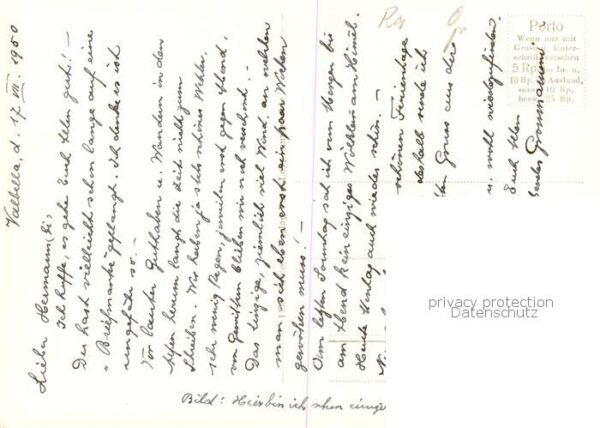 Valbella, d. 17. VII. 1950
Lieber Hermann,
Ich hoffe, es gehe Euch allen gut! –
Du hast vielleicht schon lange auf eine
„Briefmarke" geplangt. Ich denke es ist
ungefähr so. –
Vor lauter Gutshaben u. Wandern in den
Alpen herum langt die Zeit nicht zum
Schreiben. Wir haben ja stets schönes Wetter,
sehr wenig Regen, jeweilen erst gegen Abend,
von Gewittern blieben wir noch verschont. –
Das einzige, ziemlich viel Wind, an welchen
man sich eben erst ein paar Wochen
gewöhnen muss! –
Am letzten Sonntag sah ich vom Morgen bis
am Abend kein einziges Wölklein am Himmel.
Heute Montag auch wieder schön. –
schönen Ferientage
deshalb sende ich
Gruss aus dem
u. wohl wiedergefunden.
Euch allen
Bild: Hier bin ich schon einige
Porto
Wenn nur mit
Gruss u. Unter-
schrift versehen
5 Rp. im In- u.
10 Rp. i. Ausland,
sonst 10 Rp.
bezw. 25 Rp.
privacy protection
Datenschutz